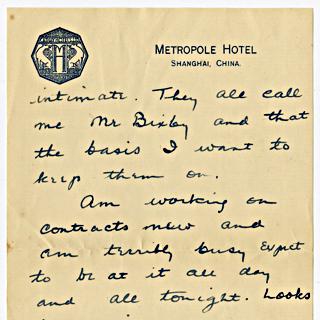 METROPOLE HOTEL
SHANGHAI, CHINA.
intimate. They all call
me Mr Bixby and that
the basis I want to
keep them on.
Am working on
contracts now and
am terribly busy Expect
to be at it all day
and all tonight. Looks